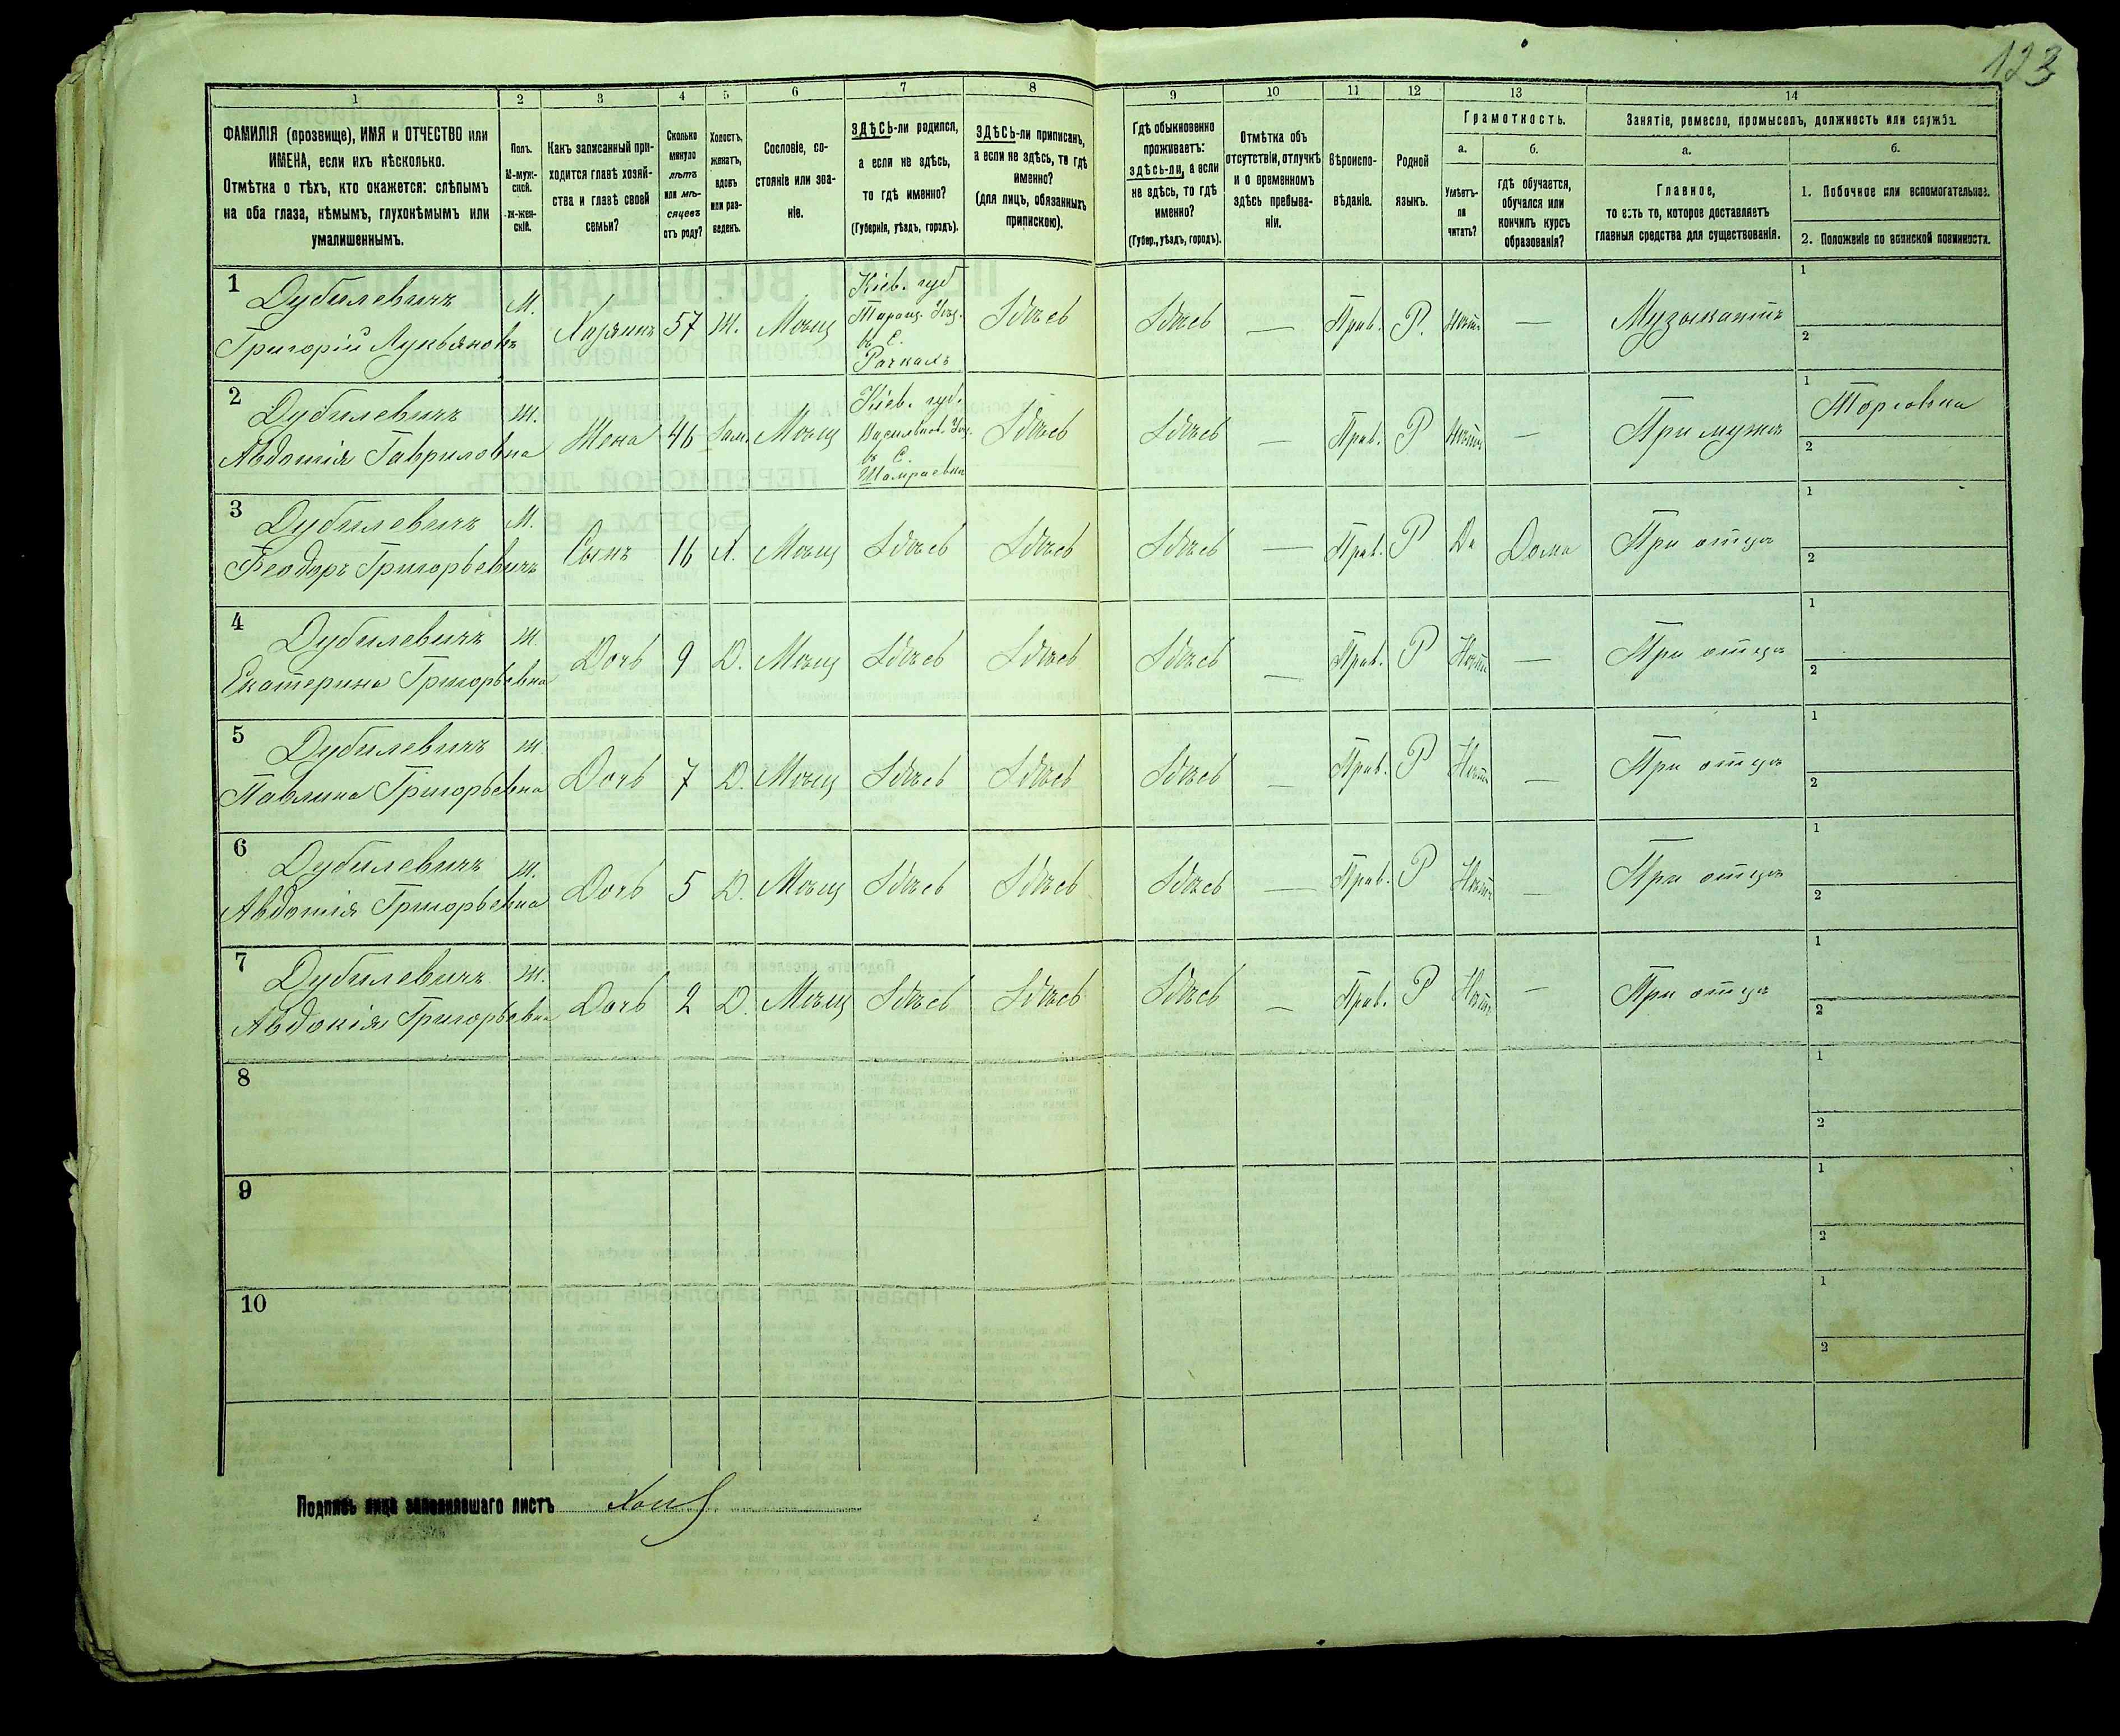 123
1 2 3 4 5 6 7 8 9 10 11 12 13 14
ФАМИЛІЯ (прозвище), ИМЯ и ОТЧЕСТВО или
ИМЕНА, если ихъ нѣсколько.
Отмѣтка о тѣхъ, кто окажется: слѣпымъ
на оба глаза, нѣмымъ, глухонѣмымъ или
умалишеннымъ.
Полъ.
М-муж-
ской.
ж-жен-
скій.
Какъ записанный при-
ходится главѣ хозяй-
ства и главѣ своей
семьи?
Сколько
минуло
лѣтъ
или мѣ-
сяцевъ
отъ роду?
Холостъ,
женатъ,
вдовъ
или раз-
веденъ.
Сословіе, со-
стояніе или зва-
ніе.
ЗДѢСЬ-ли родился,
а если не здѣсь,
то гдѣ именно?
(Губернія, уѣздъ, городъ).
ЗДѢСЬ-ли приписанъ,
а если не здѣсь, то гдѣ
именно?
(для лицъ, обязанныхъ
припискою).
Гдѣ обыкновенно
проживаетъ:
здѣсь-ли, а если
не здѣсь, то гдѣ
именно?
(Губер., уѣздъ, городъ).
Отмѣтка объ
отсутствіи, отлучкѣ
и о временномъ
здѣсь пребыва-
ніи.
Вѣроиспо-
вѣданіе.
Родной
языкъ.
Грамотность.
а.
Умѣетъ-
ли
читать?
б.
гдѣ обучается,
обучался или
кончилъ курсъ
образованія?
Занятіе, ремесло, промыселъ, должность или служба.
а.
Главное,
то есть то, которое доставляетъ
главныя средства для существованія.
б.
1. Побочное или вспомогательное.
2. Положеніе по воинской повинности.
1
Дубилевичъ
Григорій Лукьяновъ
М.
Хозяинъ
57
Ж.
Мѣщ
Кіев. губ
Таращ. Уѣз.
въ С.
Рачкахъ
Здѣсь
Здѣсь
—
Прав.
Р.
Нѣтъ
—
Музыкантъ
1
2
2
Дубилевичъ
Авдотія Гавриловна
Ж.
Жена
46
Зам.
Мѣщ
Кіев. губ.
Васильков. Уѣз.
въ С.
Шамраевка
Здѣсь
Здѣсь
—
Прав.
Р
Нѣтъ
—
При мужѣ
1
Торговка
2
3
Дубилевичъ
Феодоръ Григорьевичъ
М.
Сынъ
16
Х.
Мѣщ
Здѣсь
Здѣсь
Здѣсь
—
Прав.
Р
Да
Дома
При отцѣ
1
2
4
Дубилевичъ
Екатерина Григорьевна
Ж.
Дочь
9
Д.
Мѣщ
Здѣсь
Здѣсь
Здѣсь
—
Прав.
Р
Нѣтъ
—
При отцѣ
1
2
5
Дубилевичъ
Павлина Григорьевна
Ж.
Дочь
7
Д.
Мѣщ
Здѣсь
Здѣсь
Здѣсь
—
Прав.
Р
Нѣтъ
—
При отцѣ
1
2
6
Дубилевичъ
Авдотія Григорьевна
Ж.
Дочь
5
Д.
Мѣщ
Здѣсь
Здѣсь
Здѣсь
—
Прав.
Р
Нѣтъ
—
При отцѣ
1
2
7
Дубилевичъ
Авдокія Григорьевна
Ж.
Дочь
2
Д.
Мѣщ
Здѣсь
Здѣсь
Здѣсь
—
Прав.
Р
Нѣтъ
—
При отцѣ
1
2
8
1
2
9
1
2
10
1
2
Подпись лица заполнявшаго листъ